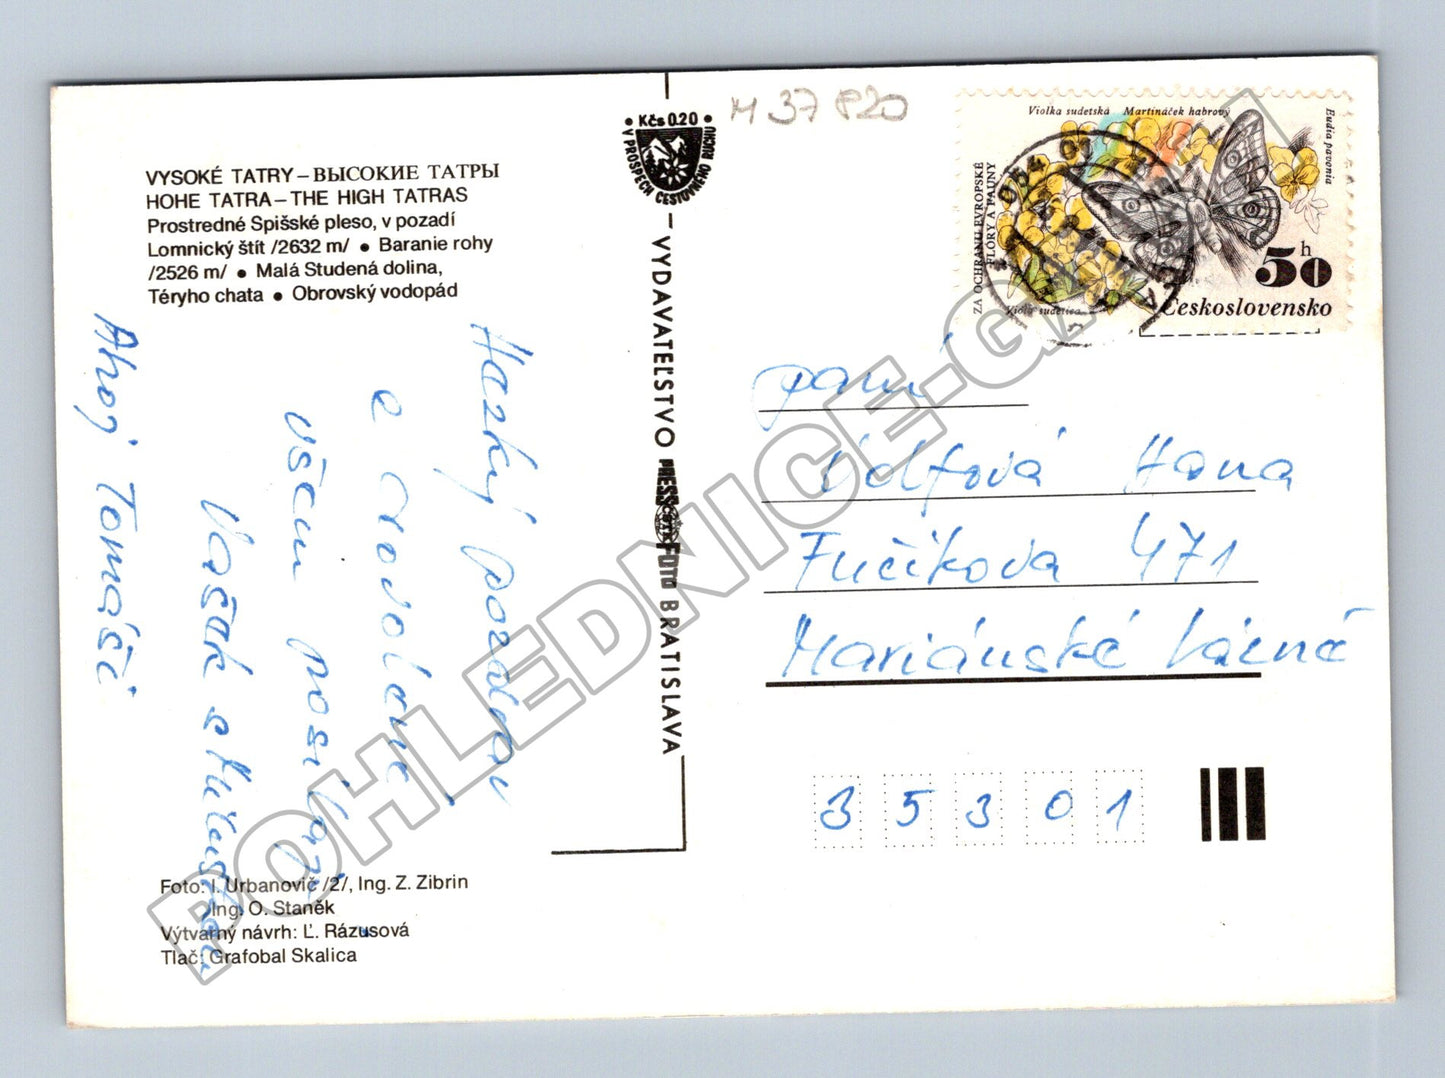 VYSOKÉ TATRY – ВЫСОКИЕ ТАТРЫ
HOHE TATRA – THE HIGH TATRAS
Prostredné Spišské pleso, v pozadí
Lomnický štít /2632 m/ ● Baranie rohy
/2526 m/ ● Malá Studená dolina,
Téryho chata ● Obrovský vodopád
Hazký pozdrav
z dovolené
všem posílají
Vašek s Miluškou
Ahoj Tomáši
Foto: I. Urbanovič /2/, Ing. Z. Zibrin
Ing. O. Staněk
Výtvarný návrh: Ľ. Rázusová
Tlač: Grafobal Skalica
• Kčs 0.20 •
V PROSPECH CESTOVNÉHO RUCHU
VYDAVATEĽSTVO PRESSFOTO BRATISLAVA
M 37 820
Violka sudetská Martináček habrový
Eudia pavonia
ZA OCHRANU EVROPSKÉ
FLÓRY A FAUNY
Viola sudetica
50 h
Československo
paní
Hana
Fučíkova 471
Mariánské Lázně
35301
POHLEDNICE-GALI